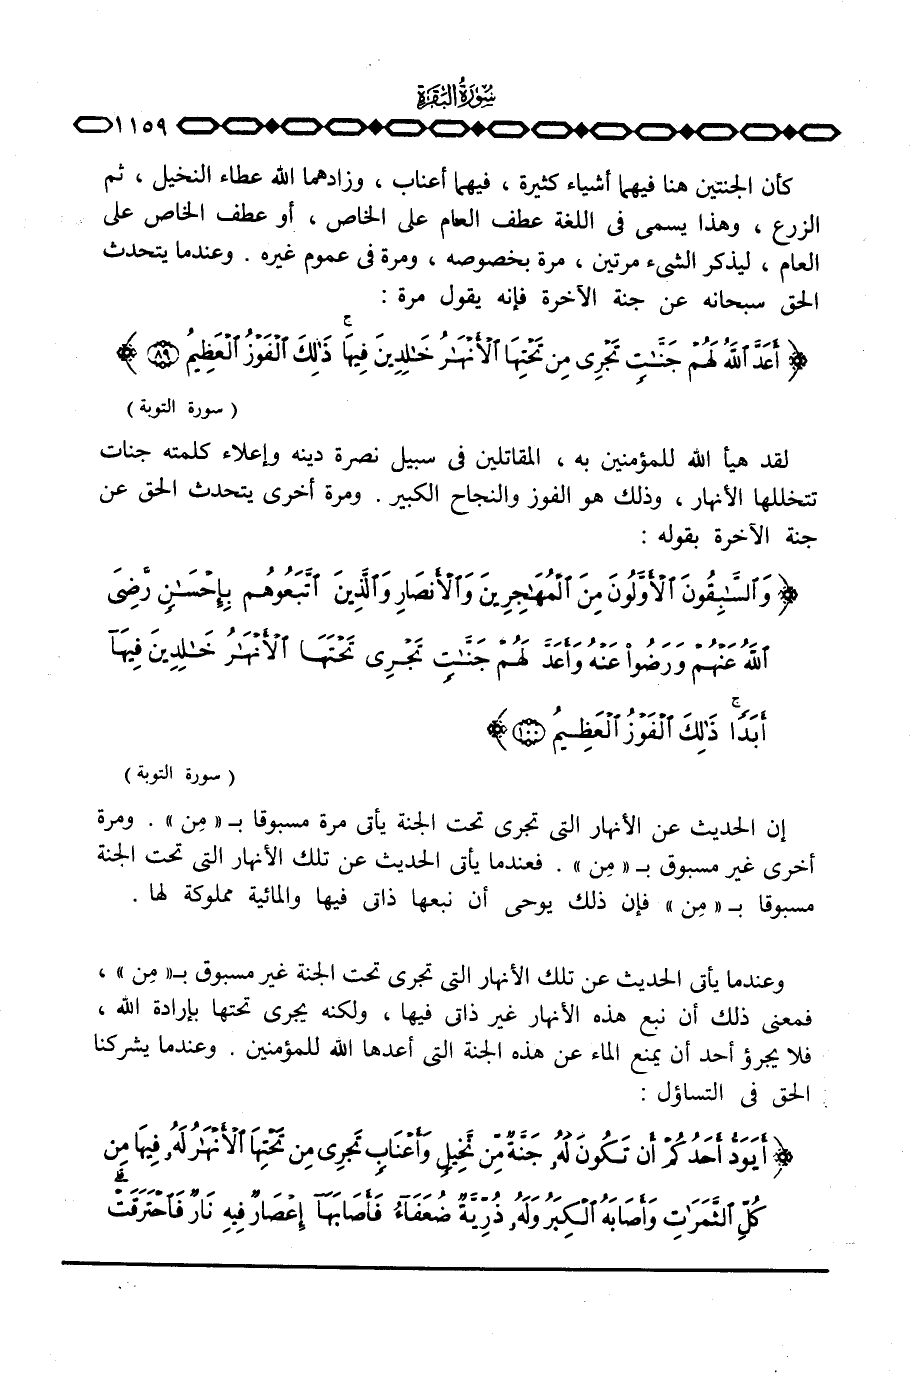 سُورَةُ البَقَرَةِ
١١٥٩
كأن الجنتين هنا فيهما أشياء كثيرة ، فيهما أعناب ، وزادهما الله عطاء النخيل ، ثم
الزرع ، وهذا يسمى فى اللغة عطف العام على الخاص ، أو عطف الخاص على
العام ، ليذكر الشىء مرتين ، مرة بخصوصه ، ومرة فى عموم غيره . وعندما يتحدث
الحق سبحانه عن جنة الآخرة فإنه يقول مرة :
﴿ أَعَدَّ ٱللَّهُ لَهُمْ جَنَّـٰتٍ تَجْرِى مِن تَحْتِهَا ٱلْأَنْهَـٰرُ خَـٰلِدِينَ فِيهَا ۚ ذَٰلِكَ ٱلْفَوْزُ ٱلْعَظِيمُ ٨٩ ﴾
( سورة التوبة )
لقد هيأ الله للمؤمنين به ، المقاتلين فى سبيل نصرة دينه وإعلاء كلمته جنات
تتخللها الأنهار ، وذلك هو الفوز والنجاح الكبير . ومرة أخرى يتحدث الحق عن
جنة الآخرة بقوله :
﴿ وَٱلسَّـٰبِقُونَ ٱلْأَوَّلُونَ مِنَ ٱلْمُهَـٰجِرِينَ وَٱلْأَنصَارِ وَٱلَّذِينَ ٱتَّبَعُوهُم بِإِحْسَـٰنٍ رَّضِىَ
ٱللَّهُ عَنْهُمْ وَرَضُوا۟ عَنْهُ وَأَعَدَّ لَهُمْ جَنَّـٰتٍ تَجْرِى تَحْتَهَا ٱلْأَنْهَـٰرُ خَـٰلِدِينَ فِيهَآ
أَبَدًا ۚ ذَٰلِكَ ٱلْفَوْزُ ٱلْعَظِيمُ ١٠٠ ﴾
( سورة التوبة )
إن الحديث عن الأنهار التى تجرى تحت الجنة يأتى مرة مسبوقا بـ « مِن » . ومرة
أخرى غير مسبوق بـ « مِن » . فعندما يأتى الحديث عن تلك الأنهار التى تحت الجنة
مسبوقا بـ « مِن » فإن ذلك يوحى أن نبعها ذاتى فيها والمائية مملوكة لها .
وعندما يأتى الحديث عن تلك الأنهار التى تجرى تحت الجنة غير مسبوق بـ« مِن » ،
فمعنى ذلك أن نبع هذه الأنهار غير ذاتى فيها ، ولكنه يجرى تحتها بإرادة الله ،
فلا يجرؤ أحد أن يمنع الماء عن هذه الجنة التى أعدها الله للمؤمنين . وعندما يشركنا
الحق فى التساؤل :
﴿ أَيَوَدُّ أَحَدُكُمْ أَن تَكُونَ لَهُۥ جَنَّةٌ مِّن نَّخِيلٍ وَأَعْنَابٍ تَجْرِى مِن تَحْتِهَا ٱلْأَنْهَـٰرُ لَهُۥ فِيهَا مِن
كُلِّ ٱلثَّمَرَٰتِ وَأَصَابَهُ ٱلْكِبَرُ وَلَهُۥ ذُرِّيَّةٌ ضُعَفَآءُ فَأَصَابَهَآ إِعْصَارٌ فِيهِ نَارٌ فَٱحْتَرَقَتْ ۗ